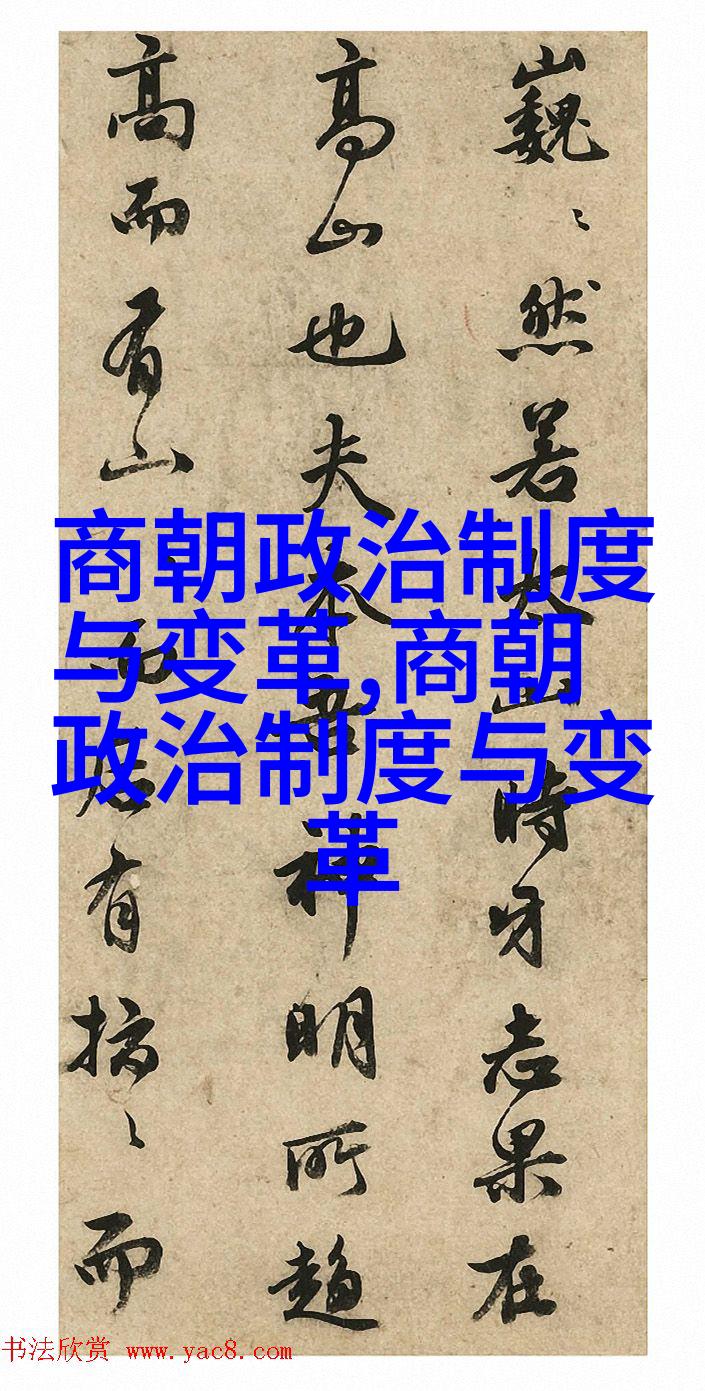 巍〻然若太山時牙志果在
高山也夫本音神明所趨
高而有山而有〻而
商朝政治制度
与变革,商朝
政治制度与变
革
书法欣赏 www.yac8.com